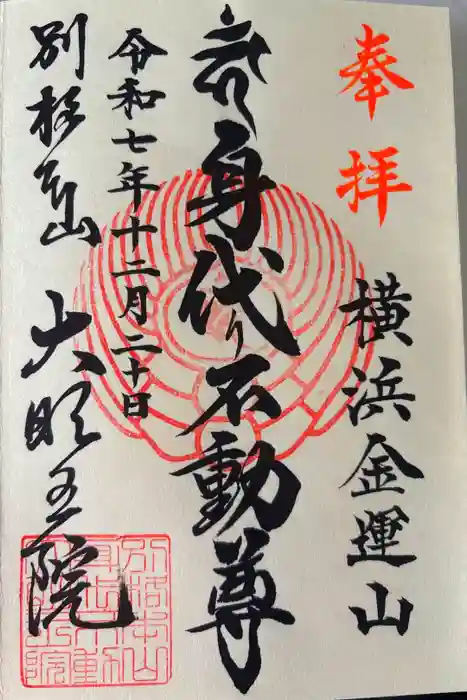 奉拝
横浜金運山
身代り不動尊
令和七年十二月二十日
別格本山
大明王院